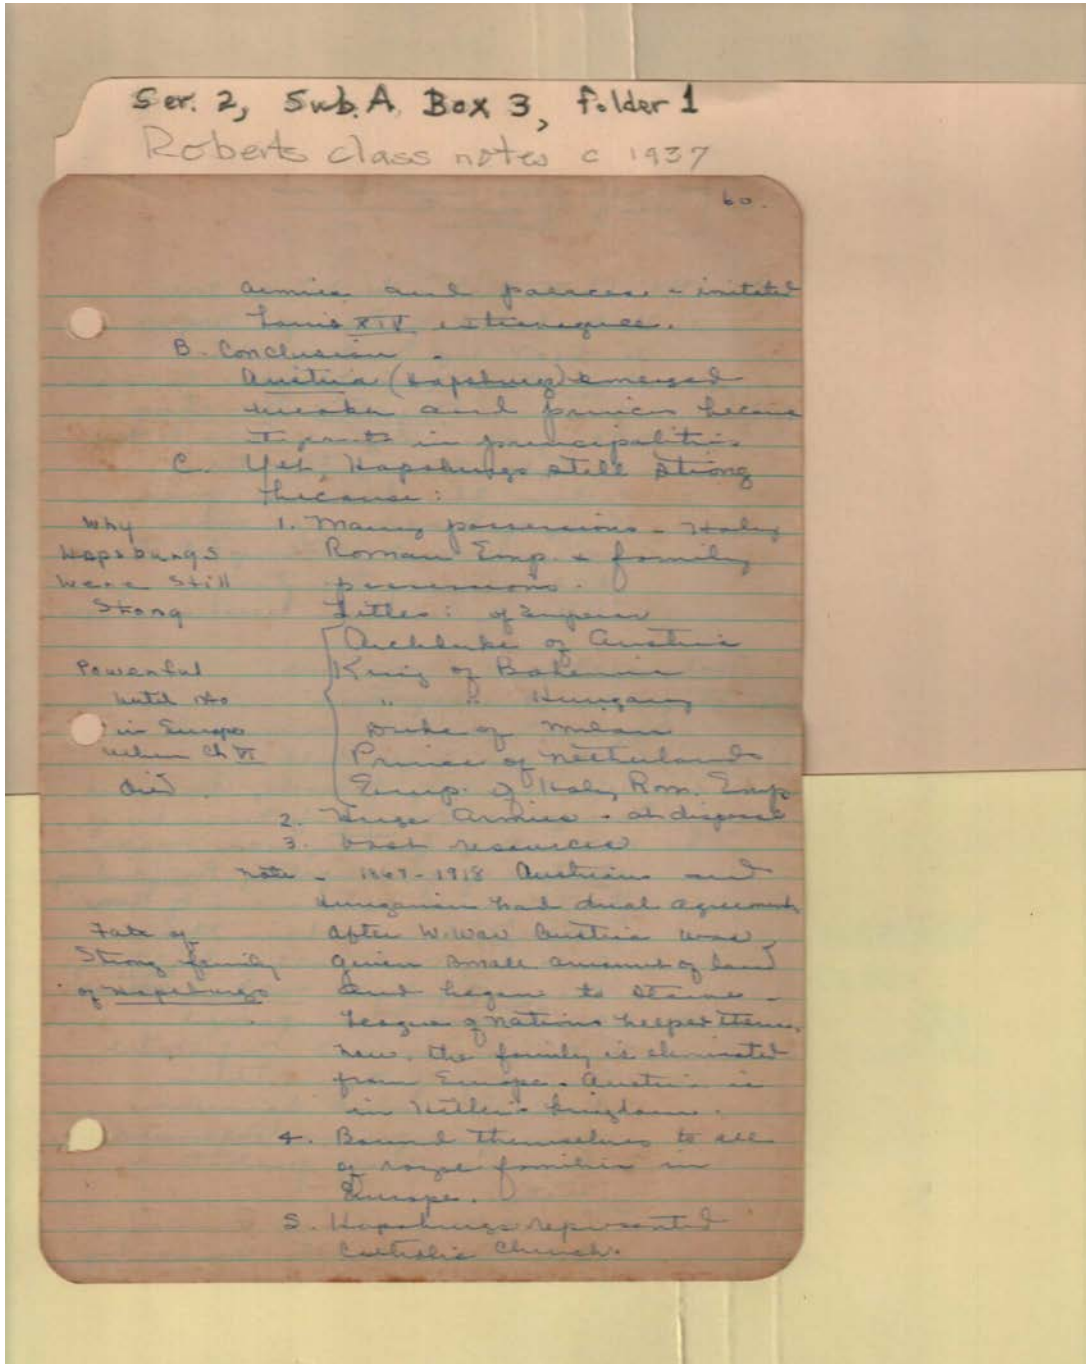 Ser. 2, Sub. A, Box 3, folder 1
Roberts class notes c 1937
60.
armies and palaces - imitated
Louis XIV extravagance.
B. Conclusion -
Austria (Hapsburg) emerged
weaker and princes became
tyrants in principalities
C. Yet, Hapsburgs still strong
because:
Why
Hapsburgs
were still
Stong
1. Many possessions - Holy
Roman Emp. + family
possessions.
Titles: of Emperor
Archduke of Austria
King of Bohemia
" " Hungary
Duke of Milan
Prince of Netherlands
Emp. of Holy Rom. Emp
Powerful
until
in Europe
when Ch VI
died.
2. Huge Armies - at disposal
3. Vast resources
Note - 1867-1918 Austrians and
Hungarian had dual agreement
After W. War Austria was
given small amount of land
and began to starve -
League of Nations helped them.
Now, the family is eliminated
from Europe. Austria is
in Hitler's kingdom.
Fate of
Strong family
of Hapsburgs
4. Bound themselves to all
of royal families in
Europe.
5. Hapsburgs represented
Catholic Church.